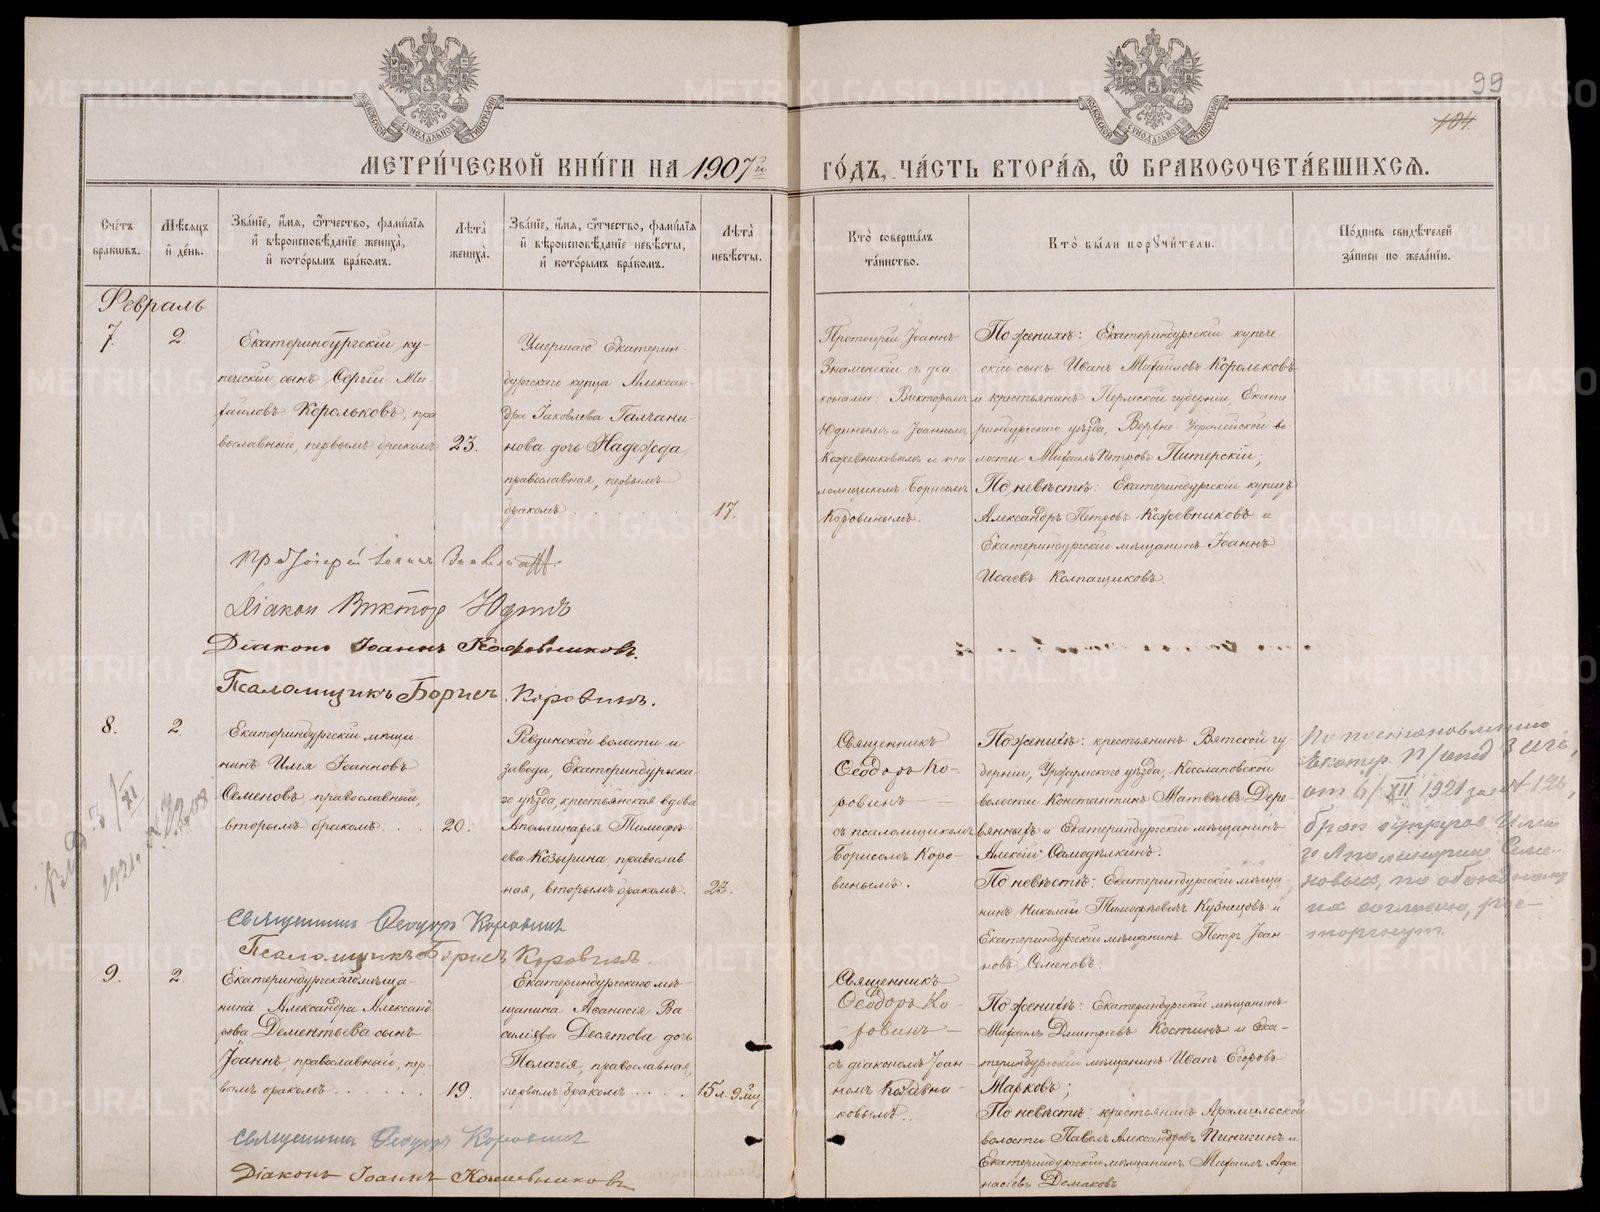 99
104.
МЕТРИ́ЧЕСКОЙ КНИ́ГИ НА 1907й ГО́ДЪ, ЧА́СТЬ ВТОРА́Ѧ, Ѽ БРАКОСОЧЕТА́ВШИХСѦ.
Сче́тъ бра́кѡвъ.
Мѣ́сяцъ и де́нь.
Зва́нїе, и́мя, ѻ́тчество, фами́лїя и вѣроисповѣ́данїе жениха̀, и кото́рымъ бра́комъ.
Лѣта̀ жениха̀.
Зва́нїе, и́мя, ѻ́тчество, фами́лїя и вѣроисповѣ́данїе невѣ́сты, и кото́рымъ бра́комъ.
Лѣта̀ невѣ́сты.
Кто̀ соверша́лъ та́инство.
Кто̀ бы́ли порꙋчи́тели.
По́дпись свидѣ́телей за́писи по жела́нїю.
Февраль
7.
2.
Екатеринбургскій ку-
печескій сынъ Сергій Ми-
хаиловъ Корольковъ, пра
вославный, первымъ бракомъ
23.
Умершаго Екатерин-
бургскаго купца Алексан-
дра Іаковлева Галчани-
нова дочь Надежда,
православная, первымъ
бракомъ . . . .
17.
Протоіерей Іоаннъ
Знаменскій съ діа-
конами: Викторомъ
Юдинымъ и Іоанномъ
Кожевниковымъ и пса-
ломщикомъ Борисомъ
Коровинымъ.
По женихѣ: Екатеринбургскій купече
скій сынъ Иванъ Михаиловъ Корольковъ
и крестьянинъ Пермской губерніи, Екате
ринбургскаго уѣзда, Верхне Уфалейской во
лости Михаилъ Петровъ Питерскій;
По невѣстѣ: Екатеринбургскій купецъ
Александръ Петровъ Кожевниковъ и
Екатеринбургскій мѣщанинъ Іоаннъ
Исаевъ Колпащиковъ.
Протоіерей Іоаннъ Знаменскій
Діакон Виктор Юдинъ
Діаконъ Іоаннъ Кожевниковъ.
Псаломщикъ Борисъ Коровинъ.
8.
2.
Екатеринбургскій мѣща-
нинъ Илія Іоанновъ
Семеновъ, православный,
вторымъ бракомъ . . .
20.
Ревдинской волости и
завода, Екатеринбургска-
го уѣзда, крестьянская вдова
Аполлинарія Тимофѣ
ева Козырина, православ
ная, вторымъ бракомъ.
23.
Священникъ
Ѳеодоръ Ко-
ровинъ —
съ псаломщикомъ
Борисомъ Коро-
винымъ.
По женихѣ: крестьянинъ Вятской гу-
берніи, Уржумскаго уѣзда, Косолаповской
волости Константинъ Матвѣевъ Дере-
вянныхъ и Екатеринбургскій мѣщанинъ
Алексій Самодѣлкинъ.
По невѣстѣ: Екатеринбургскій мѣща-
нинъ Николай Тимофѣевичъ Кузнецовъ и
Екатеринбургскій мѣщанинъ Петръ Іоан-
новъ Семеновъ.
По постановлению
Екатер.
от 6/XII 1921 за № 126,
брак супругов Илии
и Аполлинарии Семе-
новых, по обоюдному
их согласию, рас-
торгнут.
Священникъ Ѳеодоръ Коровинъ
Псаломщикъ Борисъ Коровинъ.
9.
2.
Екатеринбургскаго мѣща-
нина Александра Александ
рова Дементьева сынъ
Іоаннъ, православный, пер-
вымъ бракомъ . . . . . .
19.
Екатеринбургскаго мѣ-
щанина Аѳанасія Ва-
силіева Десятова дочь
Пелагія, православная,
первымъ бракомъ . . . .
15 л. 9 мц.
Священникъ
Ѳеодоръ Ко-
ровинъ —
съ діакономъ Іоан
номъ Кожевни-
ковымъ..
По женихѣ: Екатеринбургскій мѣщанинъ
Михаилъ Дмитріевъ Костинъ и Ека-
теринбургскій мѣщанинъ Иванъ Егоровъ
Марковъ;
По невѣстѣ: крестьянинъ Арамильской
волости Павелъ Александровъ Пинигинъ и
Екатеринбургскій мѣщанинъ Михаилъ Аѳа
насіевъ Демаковъ
Священникъ Ѳеодоръ Коровинъ
Діаконъ Іоаннъ Кожевниковъ